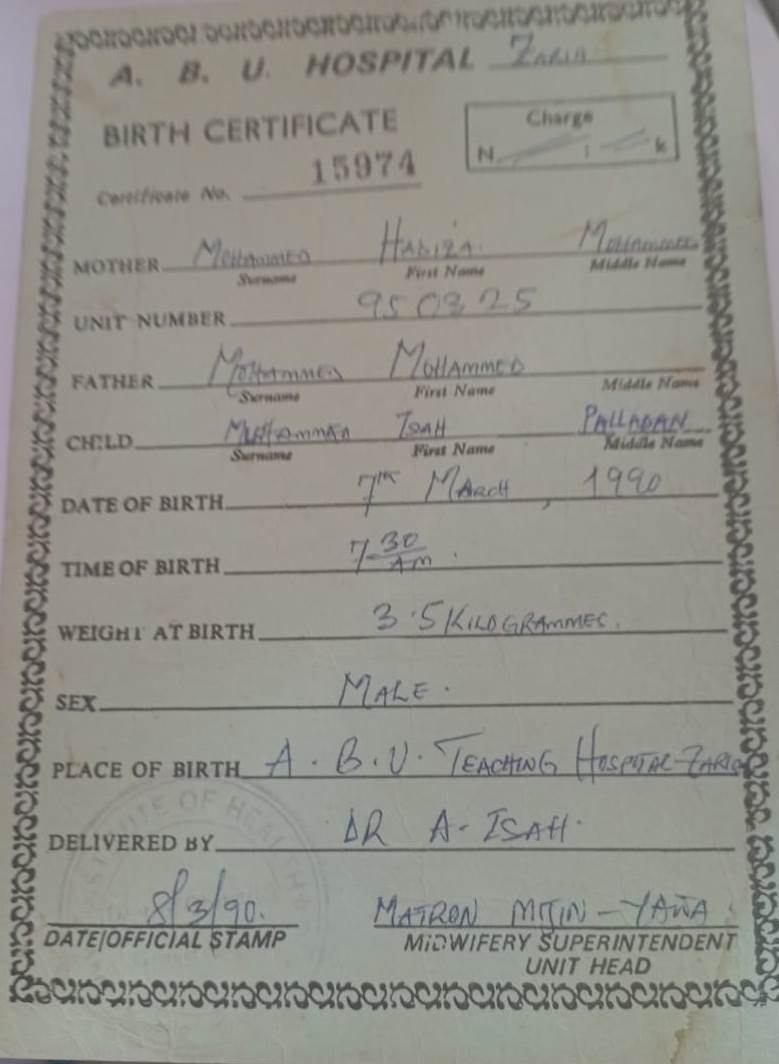 A. B. U. HOSPITAL Zaria
BIRTH CERTIFICATE
Charge
N i k
Certificate No. 15974
MOTHER Mohammed Habiza Mohammed
Surname First Name Middle Name
UNIT NUMBER 950325
FATHER Mohammed MOHAMMED
Surname First Name Middle Name
CHILD Muhammad ISAH PALLADAN
Surname First Name Middle Name
DATE OF BIRTH 7th MARCH, 1990
TIME OF BIRTH 7-30 AM.
WEIGHT AT BIRTH 3.5 KILOGRAMMES.
SEX MALE.
PLACE OF BIRTH A.B.U. TEACHING HOSPITAL-ZARIA
DELIVERED BY DR A-ISAH.
INSTITUTE OF HEALTH
8/3/90. MATRON
DATE/OFFICIAL STAMP MIDWIFERY SUPERINTENDENT
UNIT HEAD